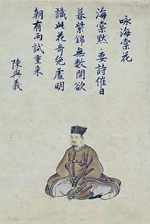 咏海棠花
海棠默々要詩催日
暮紫錦無數開欲
識此花奇絕處明
朝有雨試重來
陳與義